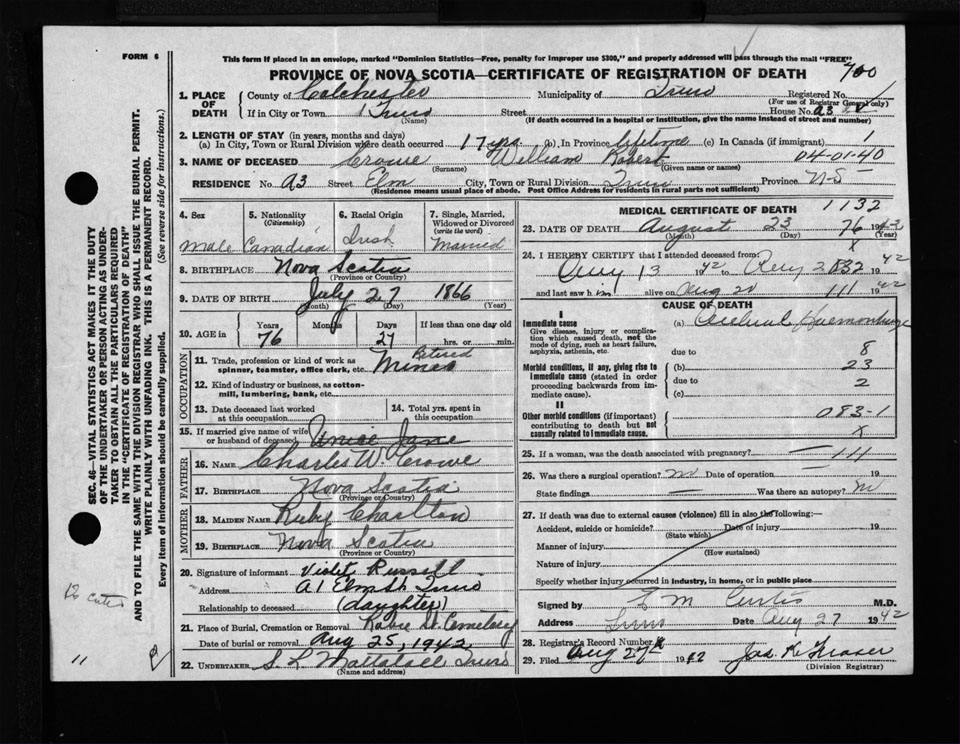 FORM 6
This form if placed in an envelope, marked "Dominion Statistics—Free, penalty for improper use $300," and properly addressed will pass through the mail "FREE"
PROVINCE OF NOVA SCOTIA—CERTIFICATE OF REGISTRATION OF DEATH 700
1. PLACE OF DEATH
County of Colchester Municipality of Truro Registered No.
(For use of Registrar General only)
If in City or Town Truro Street House No. 
(Name) (If death occurred in a hospital or institution, give the name instead of street and number)
2. LENGTH OF STAY (in years, months and days)
(a) In City, Town or Rural Division where death occurred 17 yrs. (b) In Province lifetime (c) In Canada (if immigrant) 1
3. NAME OF DECEASED Crowe William Robert 04-01-40
(Surname) (Given name or names)
RESIDENCE No. Street Elm City, Town or Rural Division Truro Province N-S
(Residence means usual place of abode. Post Office Address for residents in rural parts not sufficient)
4. Sex Male
5. Nationality (Citizenship) Canadian
6. Racial Origin Irish
7. Single, Married, Widowed or Divorced (write the word) Married
8. BIRTHPLACE Nova Scotia
(Province or Country)
9. DATE OF BIRTH July 27 1866
(Month) (Day) (Year)
10. AGE in Years 76 Months Days 27 If less than one day old hrs. or min.
OCCUPATION
11. Trade, profession or kind of work as spinner, teamster, office clerk, etc. Retired Miner
12. Kind of industry or business, as cotton-mill, lumbering, bank, etc.
13. Date deceased last worked at this occupation
14. Total yrs. spent in this occupation
15. If married give name of wife or husband of deceased Jane
FATHER
16. NAME Charles W. Crowe
17. BIRTHPLACE Nova Scotia
(Province or Country)
MOTHER
18. MAIDEN NAME Ruby Charlton
19. BIRTHPLACE Nova Scotia
(Province or Country)
20. Signature of informant Violet Russell
Address Elm St. Truro
Relationship to deceased (daughter)
21. Place of Burial, Cremation or Removal Robie St. Cemetery
Date of burial or removal Aug 25, 1942
22. UNDERTAKER Truro
(Name and address)
MEDICAL CERTIFICATE OF DEATH 1132
23. DATE OF DEATH August 23 76 1942
(Month) (Day) (Year)
x
24. I HEREBY CERTIFY that I attended deceased from:
Aug 13 1942 to Aug 1942
and last saw him alive on Aug 20 111 1942
CAUSE OF DEATH
I
Immediate cause
Give disease, injury or complication which caused death, not the mode of dying, such as heart failure, asphyxia, asthenia, etc.
(a) Cerebral Haemorrhage
due to 8
Morbid conditions, if any, giving rise to immediate cause (stated in order proceeding backwards from immediate cause).
(b) 23
due to 2
(c)
II
Other morbid conditions (if important) contributing to death but not causally related to immediate cause.
083-1
x
25. If a woman, was the death associated with pregnancy? — 111
26. Was there a surgical operation? no Date of operation — 19
State findings — Was there an autopsy? no
27. If death was due to external causes (violence) fill in also the following:—
Accident, suicide or homicide? Date of injury 19
(State which)
Manner of injury
(How sustained)
Nature of injury
Specify whether injury occurred in industry, in home, or in public place
Signed by M Curtis M.D.
Address Truro Date Aug 27 1942
28. Registrar's Record Number
29. Filed Aug 27th 1942 Jas. K Fraser
(Division Registrar)
SEC. 46—VITAL STATISTICS ACT MAKES IT THE DUTY
OF THE UNDERTAKER OR PERSON ACTING AS UNDER-
TAKER TO OBTAIN ALL THE PARTICULARS REQUIRED
IN THE "CERTIFICATE OF REGISTRATION OF DEATH"
AND TO FILE THE SAME WITH THE DIVISION REGISTRAR WHO SHALL ISSUE THE BURIAL PERMIT.
WRITE PLAINLY WITH UNFADING INK. THIS IS A PERMANENT RECORD.
Every item of information should be carefully supplied. (See reverse side for instructions.)
11